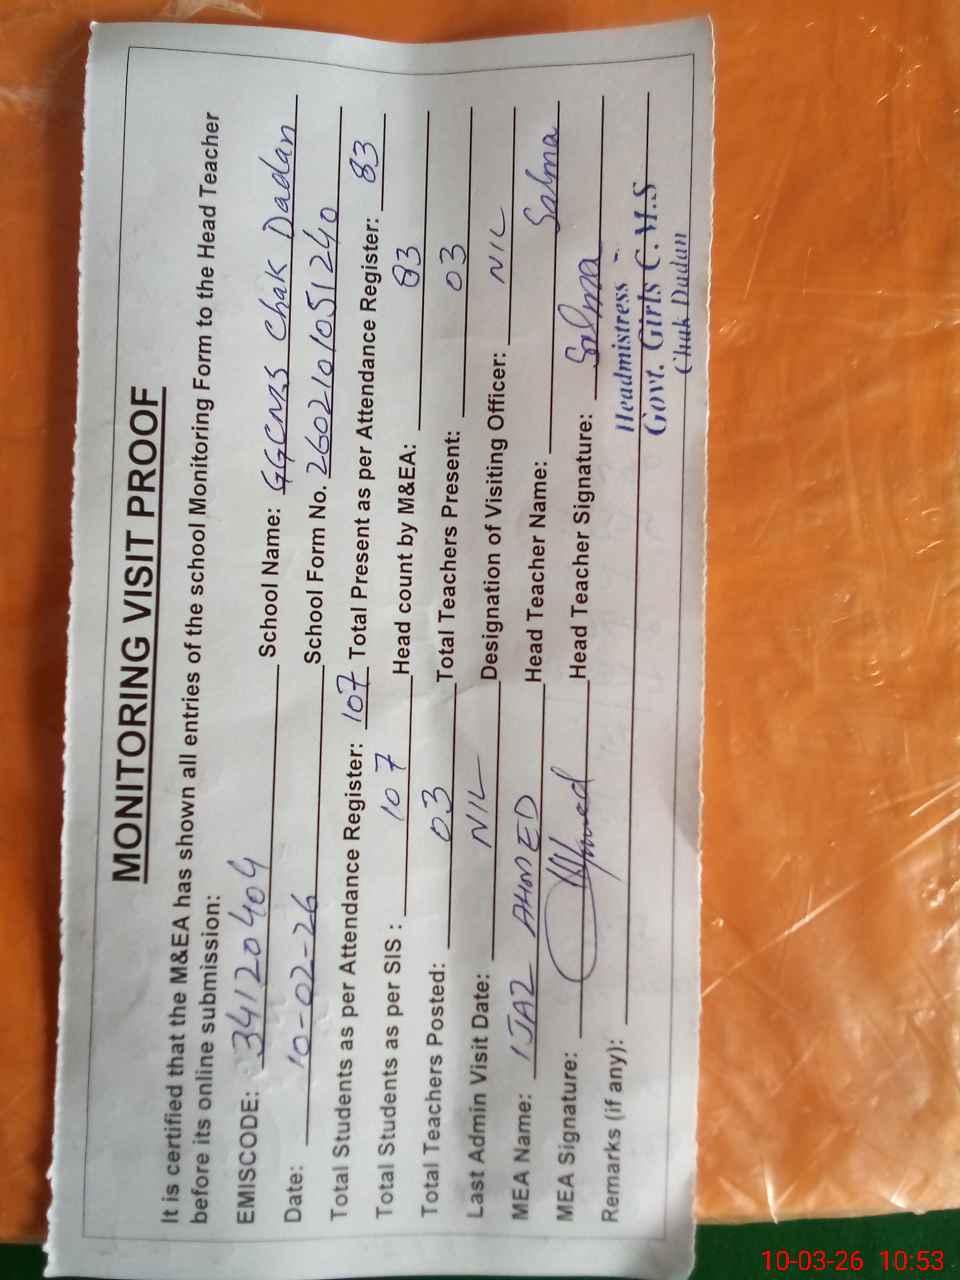 MONITORING VISIT PROOF
It is certified that the M&EA has shown all entries of the school Monitoring Form to the Head Teacher
before its online submission:
EMISCODE: 34120404 School Name: GGCMS Chak Dadan
Date: 10-02-26 School Form No. 2602101051240
Total Students as per Attendance Register: 107 Total Present as per Attendance Register: 83
Total Students as per SIS : 107 Head count by M&EA: 83
Total Teachers Posted: 03 Total Teachers Present: 03
Last Admin Visit Date: NIL Designation of Visiting Officer: NIL
MEA Name: IJAZ AHMED Head Teacher Name: Salma
MEA Signature: Ahmed Head Teacher Signature: Salma
Remarks (if any):
Headmistress
Govt. Girls C.M.S
Chak Dadan
10-03-26 10:53